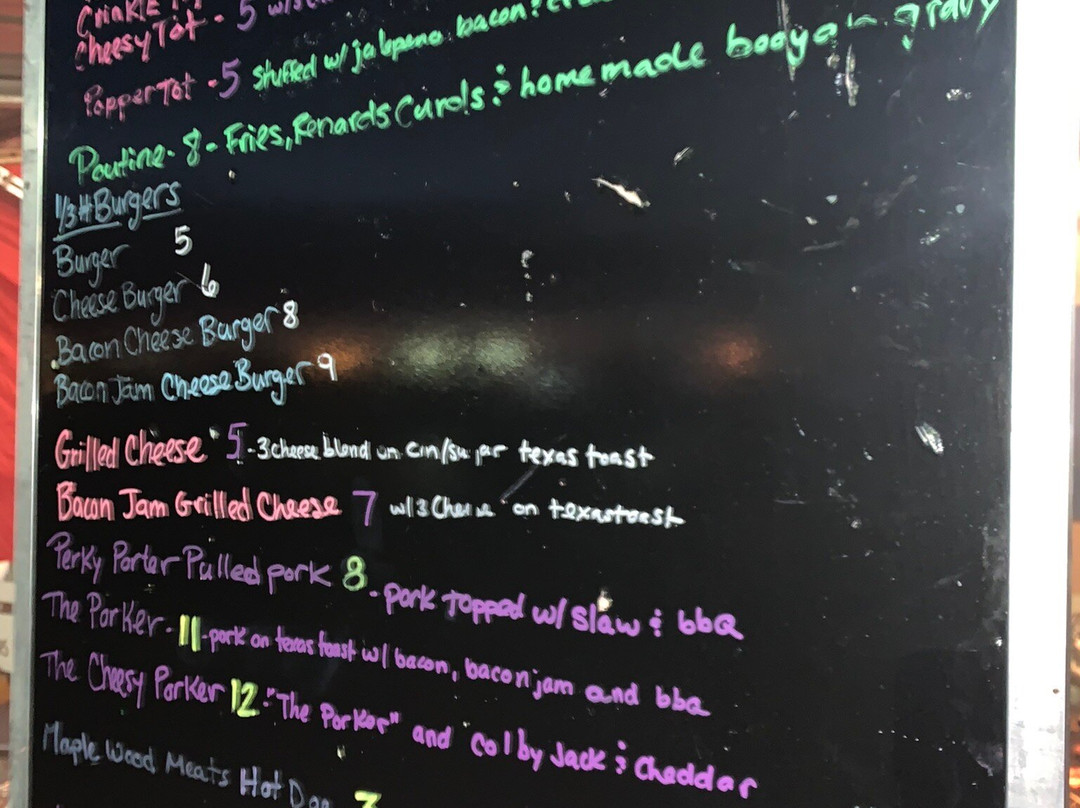 Crinkle
Cheesy Tot - 5
Popper Tot - 5 stuffed w/ jalapeno bacon &
Poutine - 8 - Fries, Renards Curds & homemade booyah gravy
1/3# Burgers
Burger 5
Cheese Burger 6
Bacon Cheese Burger 8
Bacon Jam Cheese Burger 9
Grilled Cheese 5 - 3 cheese blend on cin/sugar texas toast
Bacon Jam Grilled Cheese 7 w/ 3 Cheese on texas toast
Perky Porter Pulled pork 8 - pork topped w/ slaw & bbq
The Porker - 11 - pork on texas toast w/ bacon, bacon jam and bbq
The Cheesy Porker 12 - "The Porker" and Colby Jack & Cheddar
Maple Wood Meats Hot Dog